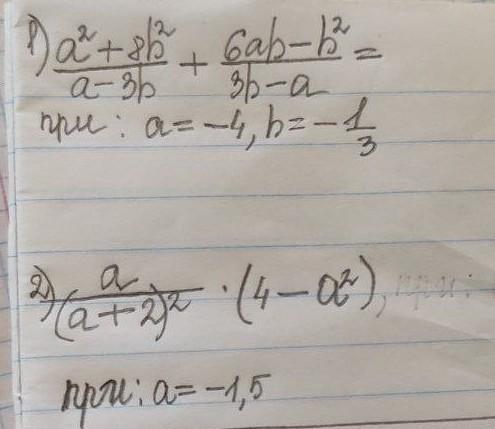 1) (a² + 8b²)/(a - 3b) + (6ab - b²)/(3b - a) =
при: a = -4, b = -1/3
2) a/(a + 2)² · (4 - a²), при:
при: a = -1,5